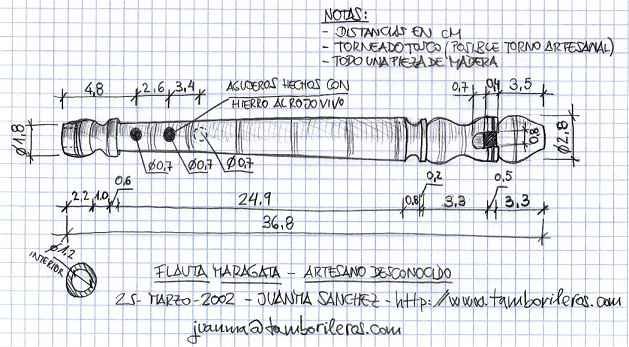 NOTAS:
- DISTANCIAS EN CM
- TORNEADO TOSCO (POSIBLE TORNO ARTESANAL)
- TODO UNA PIEZA DE MADERA
4,8 2,6 3,4 AGUJEROS HECHOS CON HIERRO AL ROJO VIVO 0,7 0,4 3,5
Ø1,8 Ø0,7 Ø0,7 Ø0,7 0,8 Ø2,8
2,2 1,0 0,6 24,9 0,8 0,2 3,3 0,5 3,3
36,8
Ø1,2
INTERIOR
FLAUTA MARAGATA - ARTESANO DESCONOCIDO
25- MARZO-2002 - JUANMA SANCHEZ - http://www.tamborileros.com
juanma@tamborileros.com